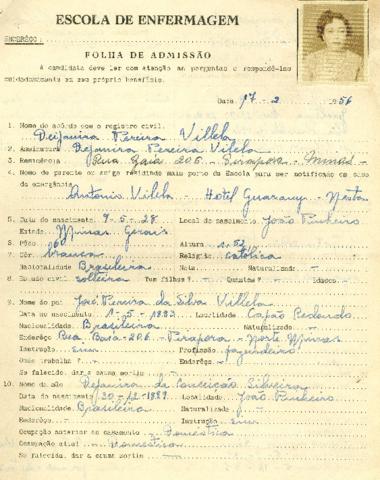 ESCOLA DE ENFERMAGEM
ENDERÊÇO:
FOLHA DE ADMISSÃO
A candidata deve ler com atenção as perguntas e respondê-las
cuidadosamente em seu próprio benefício.
Data 17 - 2 1956
1. Nome de acôrdo com o registro civil.
Dejanira Pereira Villela
2. Assinatura Dejanira Pereira Vilela
3. Residência Rua 206 - Pirapora - Minas
4. Nome do parente ou amigo residindo mais perto da Escola para ser notificado em caso
de emergência
Antonio Vilela - Hotel Guarany - Nesta
5. Data do nascimento 9-5-28 Local do nascimento João Pinheiro
Estado Minas Gerais
6. Pêso Altura 1.52
7. Côr branca Religião católica
Nacionalidade Brasileira Nata Naturalizado -
8. Estado civil solteira Tem filhos ? - Quantos ? - Idades -
9. Nome do pai José Pereira da Silva Villela
Data do nascimento 1-5-1883 Localidade Capão Redondo
Nacionalidade Brasileira Naturalizado
Enderêço Rua 206 - Pirapora - Norte Minas
Instrução Profissão fazendeiro
Onde trabalha ? - Enderêço -
Se falecido, dar a causa mortis -
10. Nome da mãe Dejanira da Conceição Silveira
Data do nascimento 30-12-1889 Localidade João Pinheiro
Nacionalidade Brasileira Naturalizada
Enderêço - Instrução
Ocupação anterior ao casamento Doméstica
Ocupação atual Doméstica
Se falecida, dar a causa mortis -